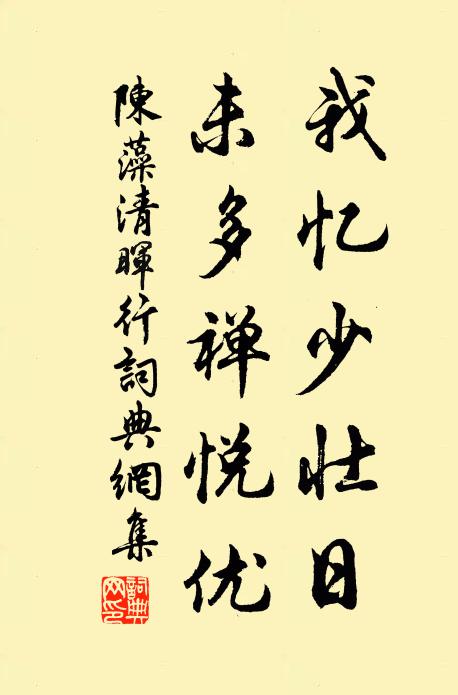 我忆少壮日
未多禅悦优
陳藻清暉行詞典網集
詞典网印